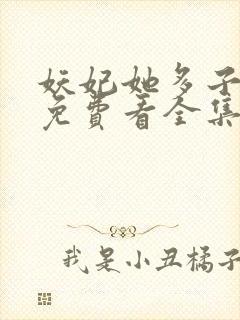 妖妃她多子
免费看全集
我是小丑橘子